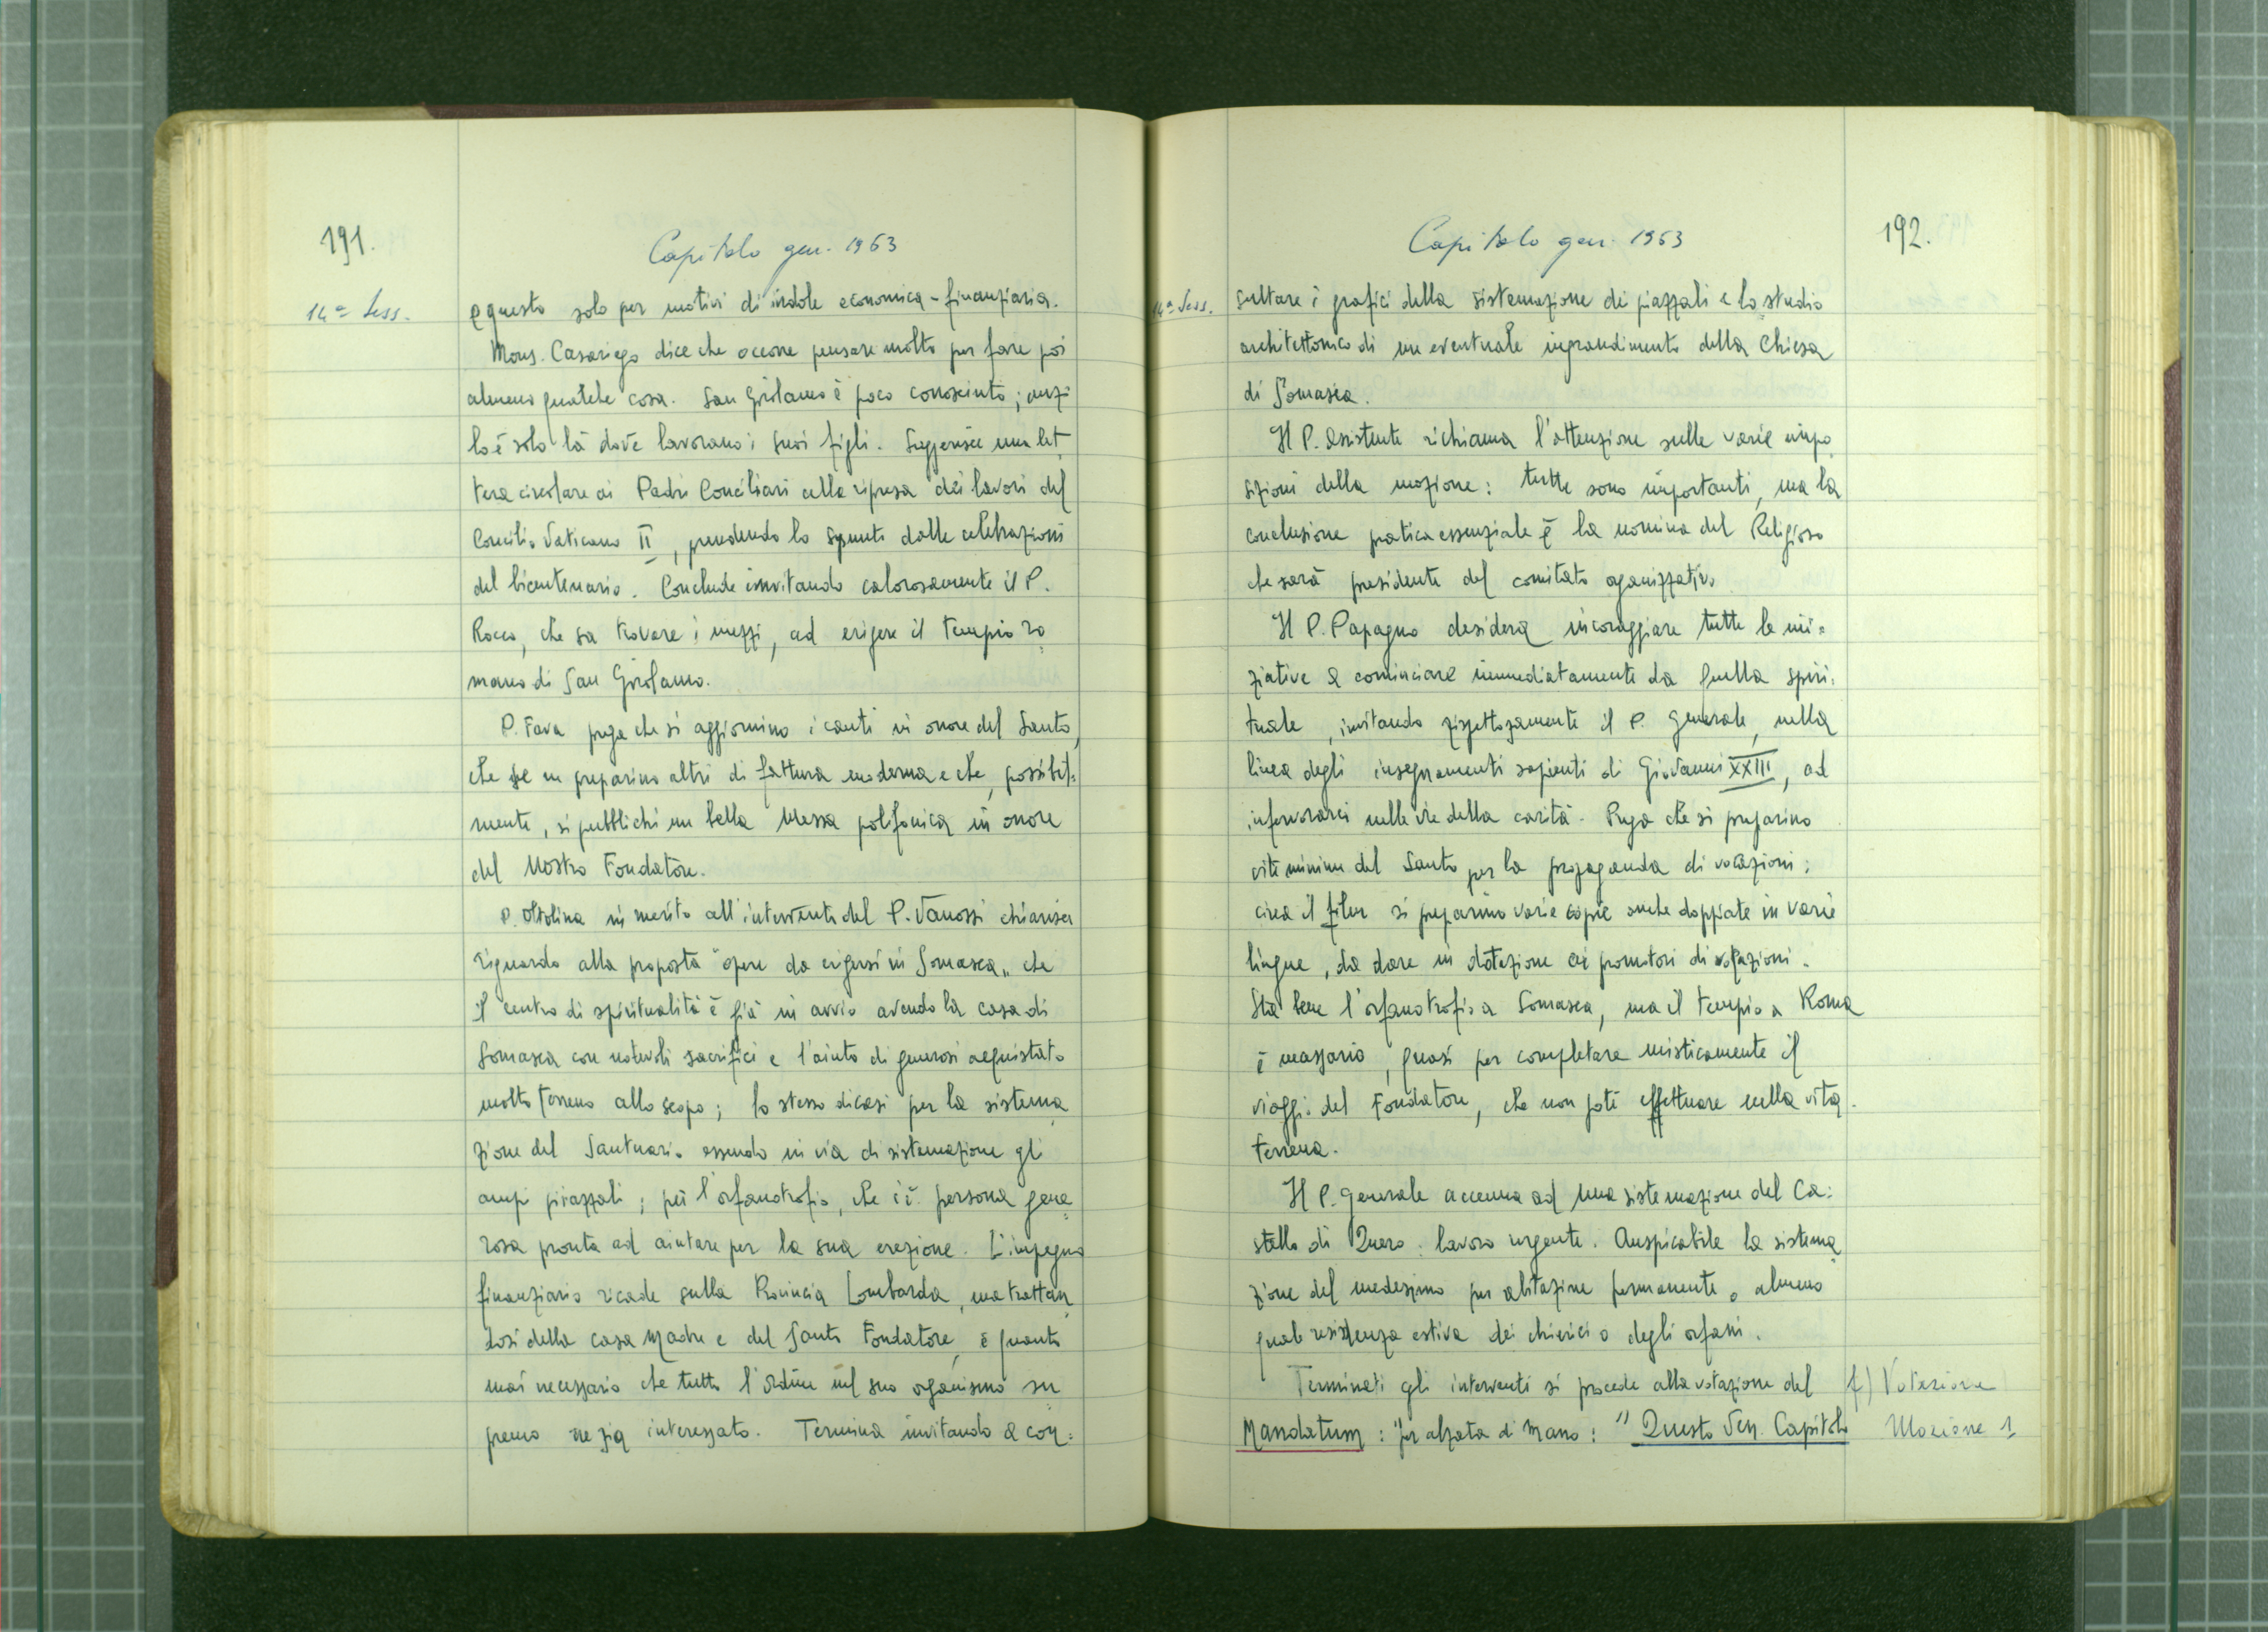 191.
Capitolo gen. 1963
14ª Sess.
e questo solo per motivi di indole economica-finanziaria.
Mons. Casariego dice che occorre pensare molto per fare poi
almeno qualche cosa. San Girolamo è poco conosciuto; anzi
lo è solo là dove lavorano i suoi figli. Suggerisce una let
tera circolare ai Padri Conciliari alla ripresa dei lavori del
Concilio Vaticano II, prendendo lo spunto dalle celebrazioni
del bicentenario. Conclude invitando calorosamente il P.
Rocco, che sa trovare i mezzi, ad erigere il tempio ro
mano di San Girolamo.
P. Fava prega che si aggiornino i canti in onore del Santo,
che se ne preparino altri di fattura moderna e che, possibil=
mente, si pubblichi un bella Messa polifonica in onore
del Nostro Fondatore.
P. Oltolina in merito all'intervento del P. Vanossi chiarisce
riguardo alla proposta "opere da erigersi in Somasca" che
il centro di spiritualità è già in avvio avendo la casa di
Somasca con notevoli sacrifici e l'aiuto di generosi acquistato
molto terreno allo scopo; lo stesso dicasi per la sistema
zione del Santuario essendo in via di sistemazione gli
ampi piazzali; per l'orfanotrofio, che c'è persona gene=
rosa pronta ad aiutare per la sua erezione. L'impegno
finanziario ricade sulla Provincia Lombarda, ma trattan
dosi della casa Madre e del Santo Fondatore, è quanto
mai necessario che tutto l'ordine nel suo organismo su
premo ne sia interessato. Termina invitando a con=
192.
Capitolo gen. 1963
14ª Sess.
sultare i grafici della sistemazione dei piazzali e lo studio
architettonico di un eventuale ingrandimento della Chiesa
di Somasca.
Il P. Assistente richiama l'attenzione sulle varie impo
sizioni della mozione: tutte sono importanti, ma la
conclusione pratica essenziale è la nomina del Religioso
che sarà presidente del comitato organizzativo
Il P. Papagno desidera incoraggiare tutte le ini=
ziative a cominciare immediatamente da quella spiri=
tuale, invitando rispettosamente il P. Generale, nella
linea degli insegnamenti sapienti di Giovanni XXIII, ad
infervorarci nelle vie della carità. Prega che si preparino
vite minime del Santo per la propaganda di vocazioni;
circa il film si preparino varie copie anche doppiate in varie
lingue, da dare in dotazione ai promotori di vocazioni.
Sta bene l'orfanotrofio a Somasca, ma il tempio a Roma
è necessario, quasi per completare misticamente il
viaggio del Fondatore, che non poté effettuare nella vita
terrena.
Il P. Generale accenna ad una sistemazione del Ca=
stello di Quero: lavoro urgente. Auspicabile la sistema
zione del medesimo per abitazione permanente o almeno
quale residenza estiva dei chierici o degli orfani.
Terminati gli interventi si procede alla votazione del
Mandatum: per alzata di mano: "Questo Ven. Capitolo
f) Votazione
Mozione 1